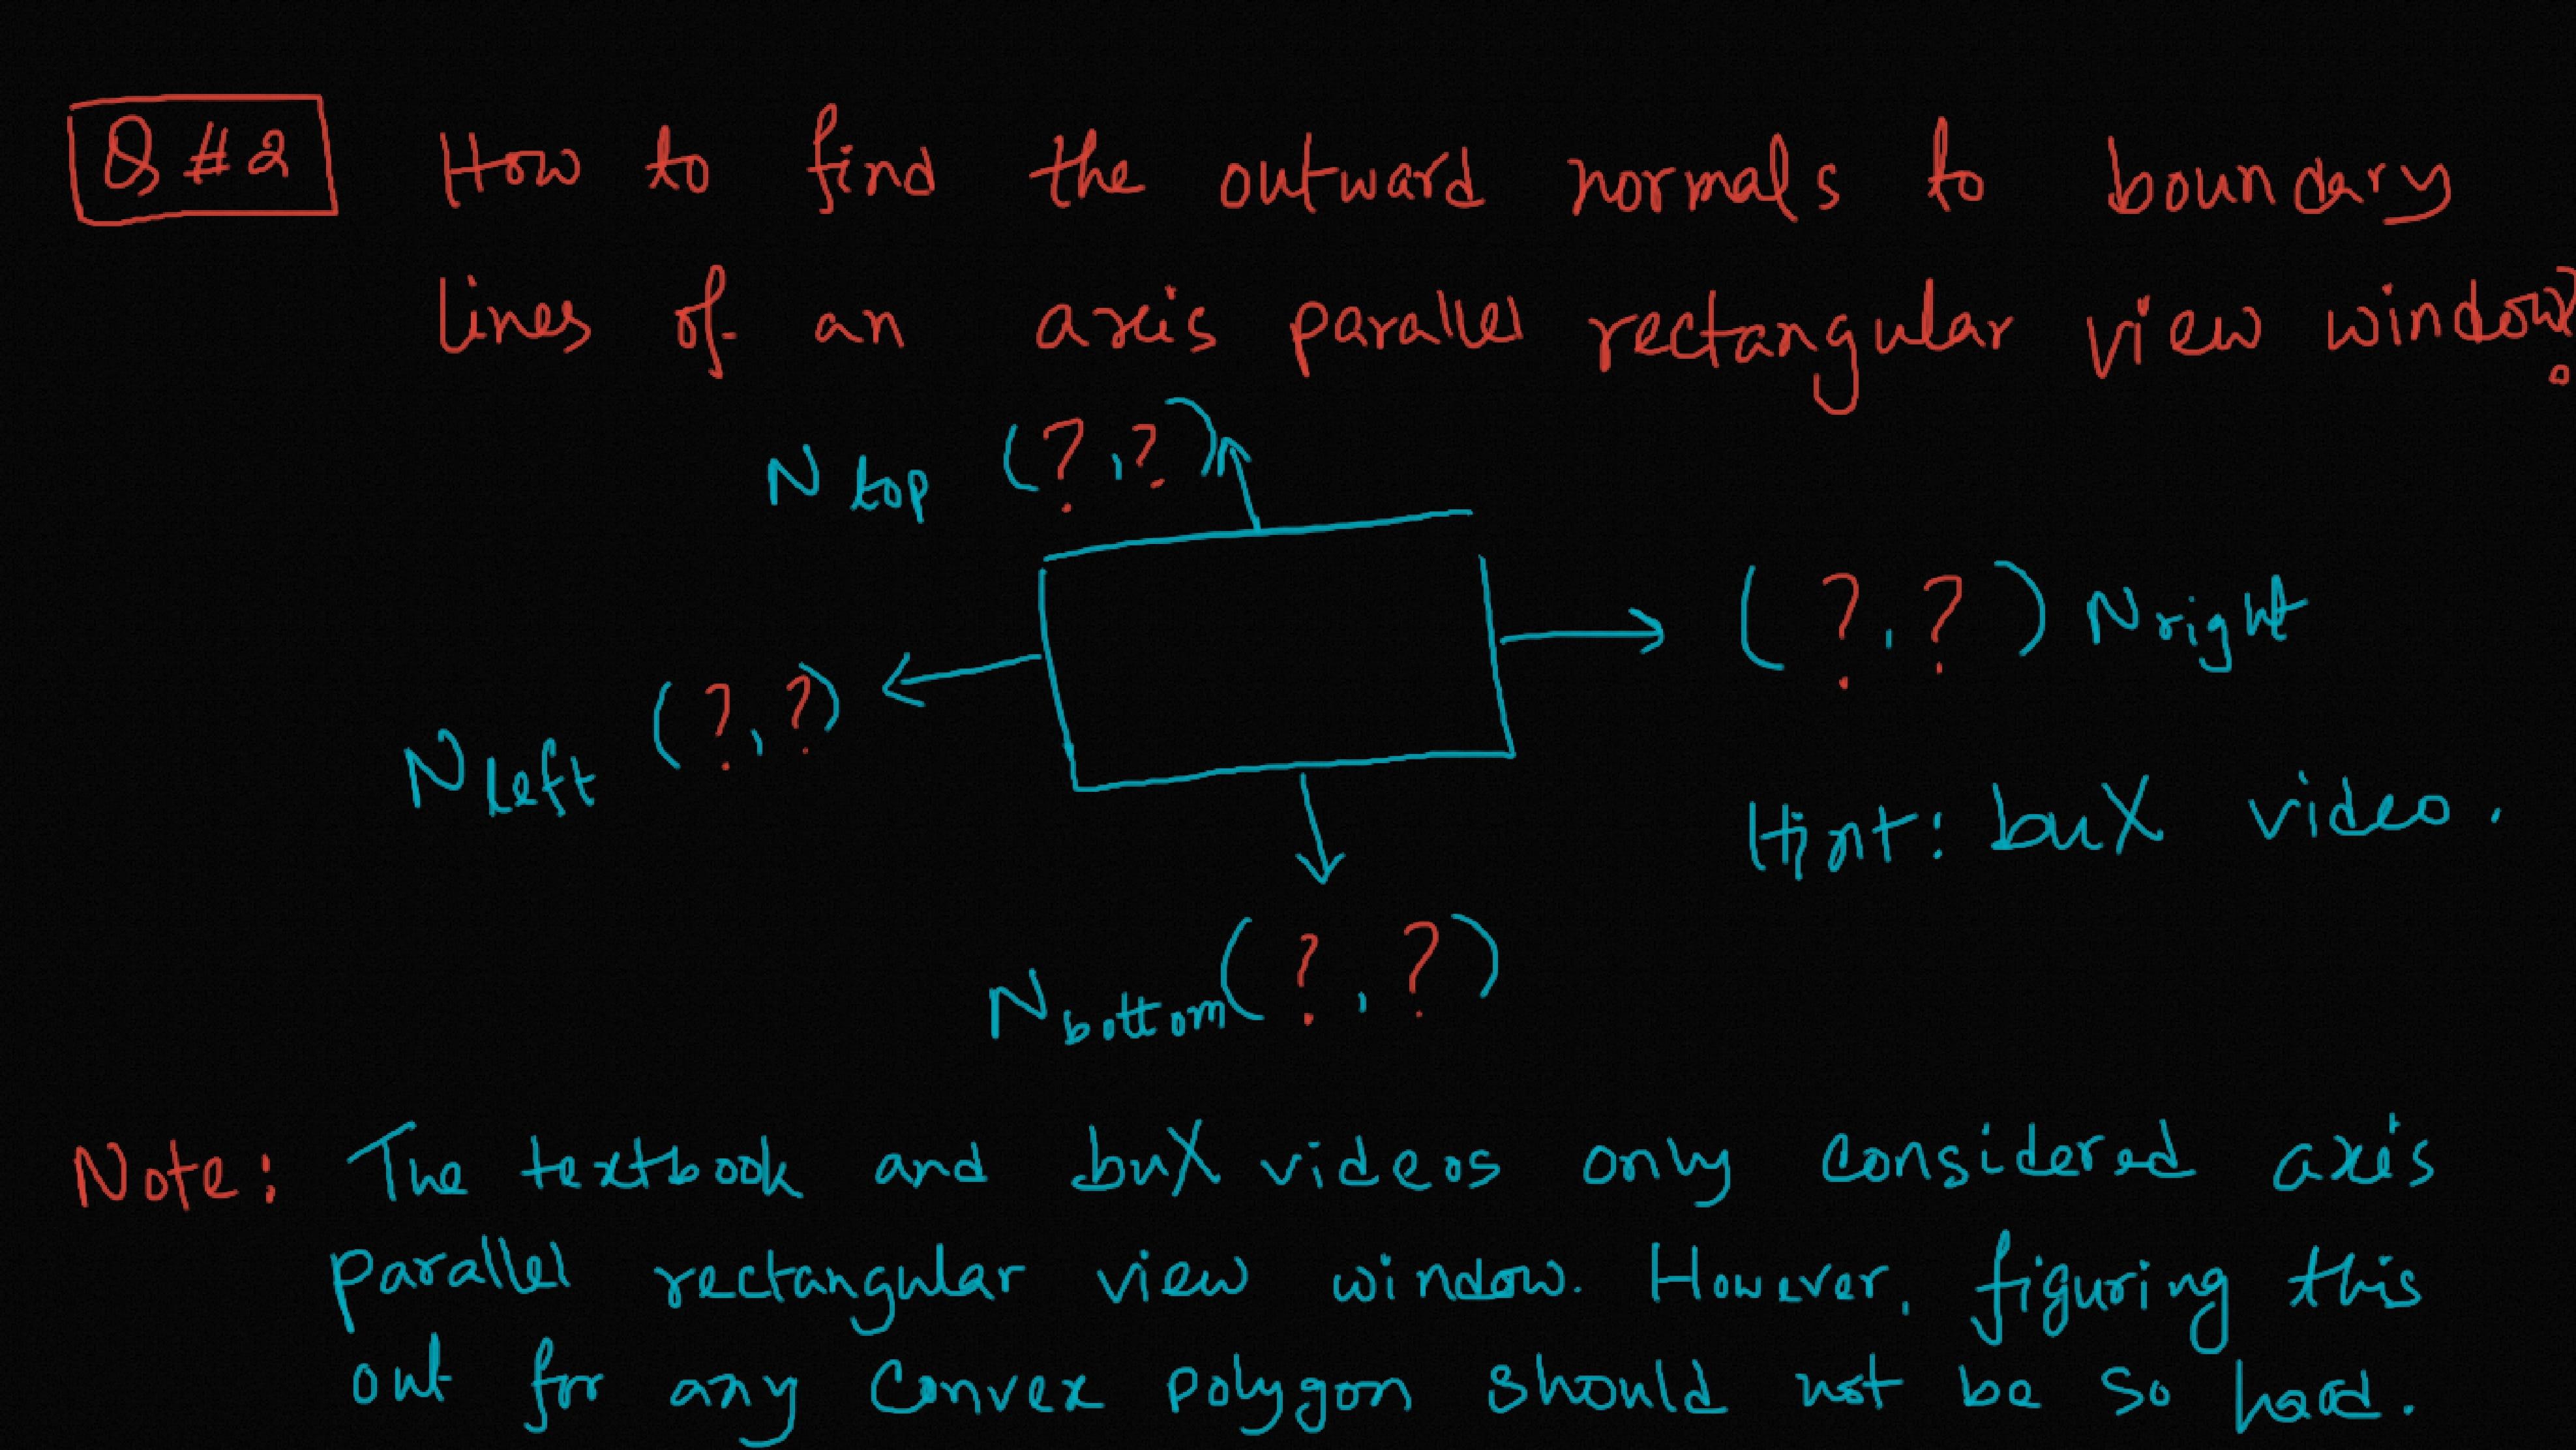 Q #2 How to find the outward normals to boundary
lines of an axis parallel rectangular view window?
N top (?,?)
(?,?) N right
N left (?,?)
Hint: buX video.
N bottom (?,?)
Note: The textbook and buX videos only considered axis
parallel rectangular view window. However, figuring this
out for any convex polygon should not be so hard.